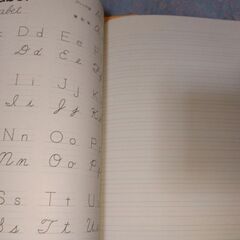 D d E e
D d E e
I i J j K
I i J j K
N n O o P
N n O o P
S s T t U
S s T t U